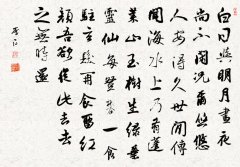 白日與明月晝夜
尚不閒況爾悠悠
人安得久世間傳
聞海水上乃有蓬
萊山玉樹生綠葉
靈仙每登攀一食
駐玄髮再食留紅
顏吾欲從此去去
之無時還